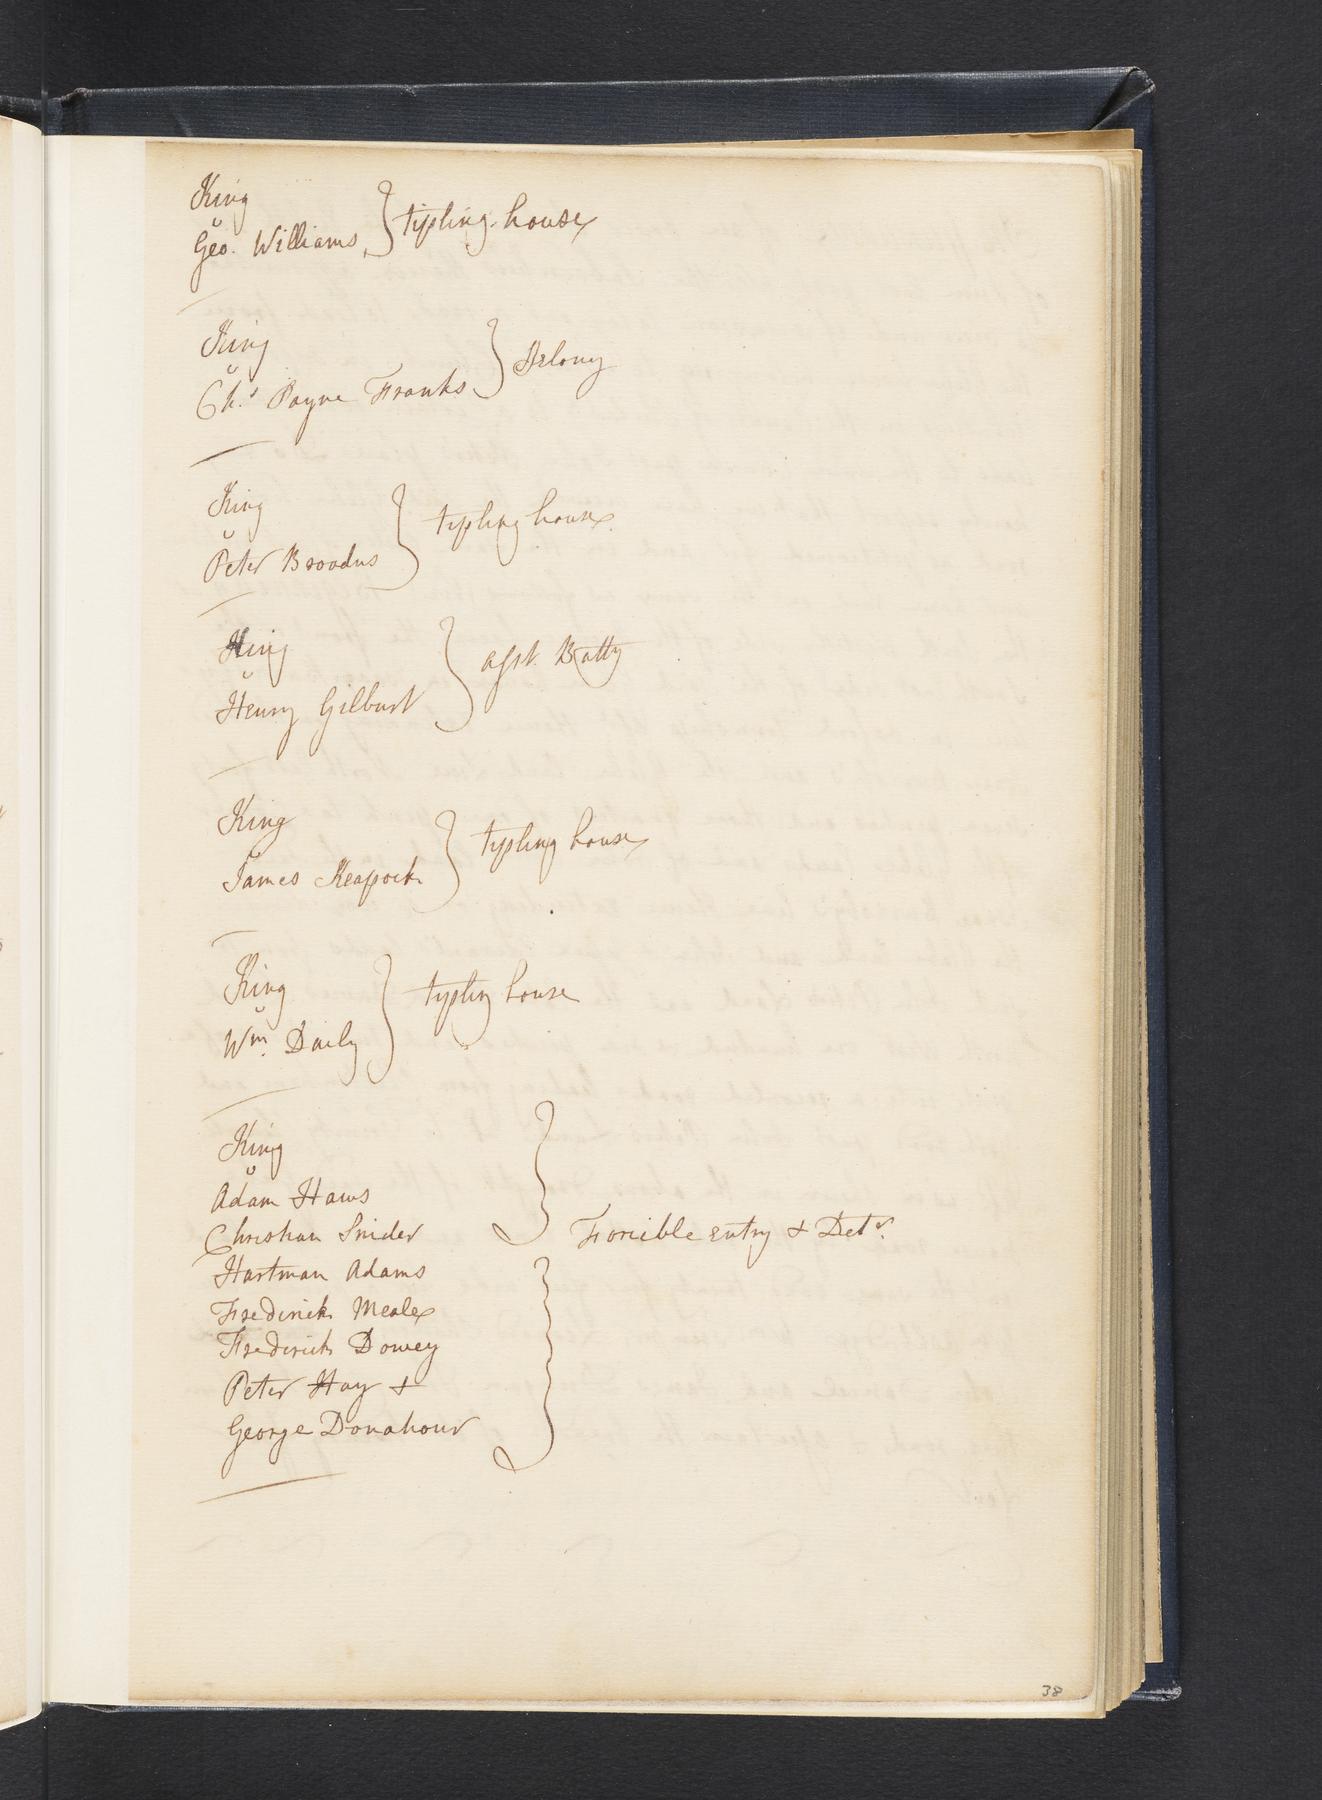 King
v
Geo. Williams } tipling house
King
v
Chs. Payne Franks } Felony
King
v
Peter Broadus } tipling house
King
v
Henry Gilbert } asst. Batty
King
v
James } tipling house
King
v
Wm. Daily } tipling house
King
v
Adam Haws
Christian Snider
Forcible entry & Detr.
Hartman Adams
Frederick Mealex
Frederick Dowey
Peter Hay &
George Donahour
38